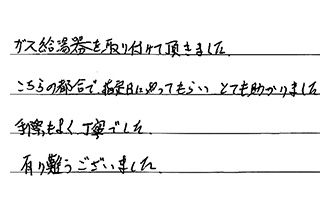 ガス給湯器を取り付けて頂きました。
こちらの都合で、指定日にやってもらい とても助かりました
手際もよく、丁寧でした。
有り難うございました。